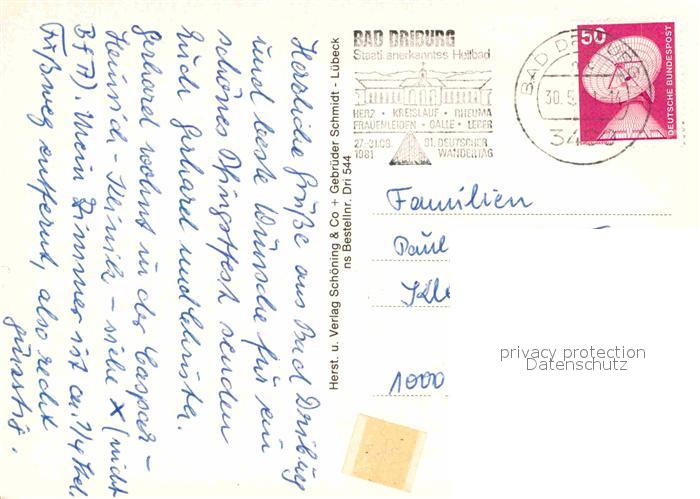 Herzliche Grüße aus Bad Driburg
und beste Wünsche für ein
schönes Pfingstfest senden
Euch Gerhard und Christa.
Gerhard wohnt in der Caspar-
Heinrich-Klinik - siehe X (nicht
BfA). Mein Zimmer ist ca. 1/4 Std.
Fußweg entfernt, also recht
günstig.
Herst. u. Verlag Schöning & Co + Gebrüder Schmidt - Lübeck
ns Bestellnr. Dri 544
BAD DRIBURG
Staatl. anerkanntes Heilbad
HERZ · KREISLAUF · RHEUMA
FRAUENLEIDEN · GALLE · LEBER
27.-31.08. 81. DEUTSCHER
1981 WANDERTAG
BAD DRIBURG
30.5.
50
DEUTSCHE BUNDESPOST
Familien
Paul
1000
privacy protection
Datenschutz